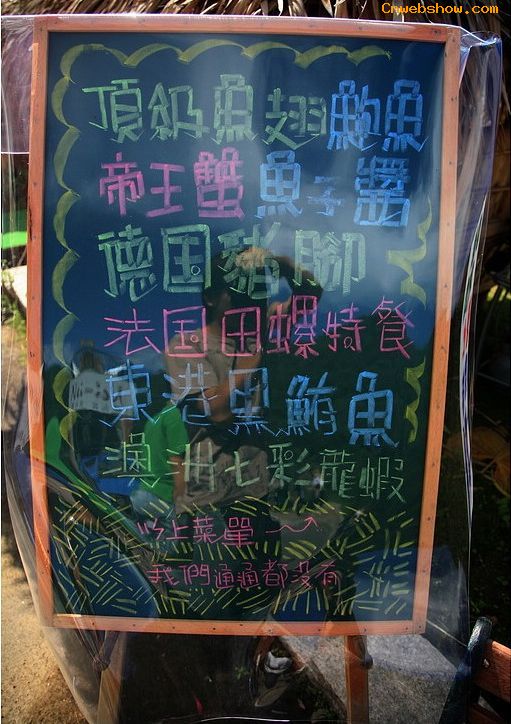 Cnwebshow.com
頂級魚翅鮑魚
帝王蟹魚子醬
德国豬腳
法国田螺特餐
東港黑鮪魚
澳洲七彩龍蝦
以上菜單→
我們通通都沒有